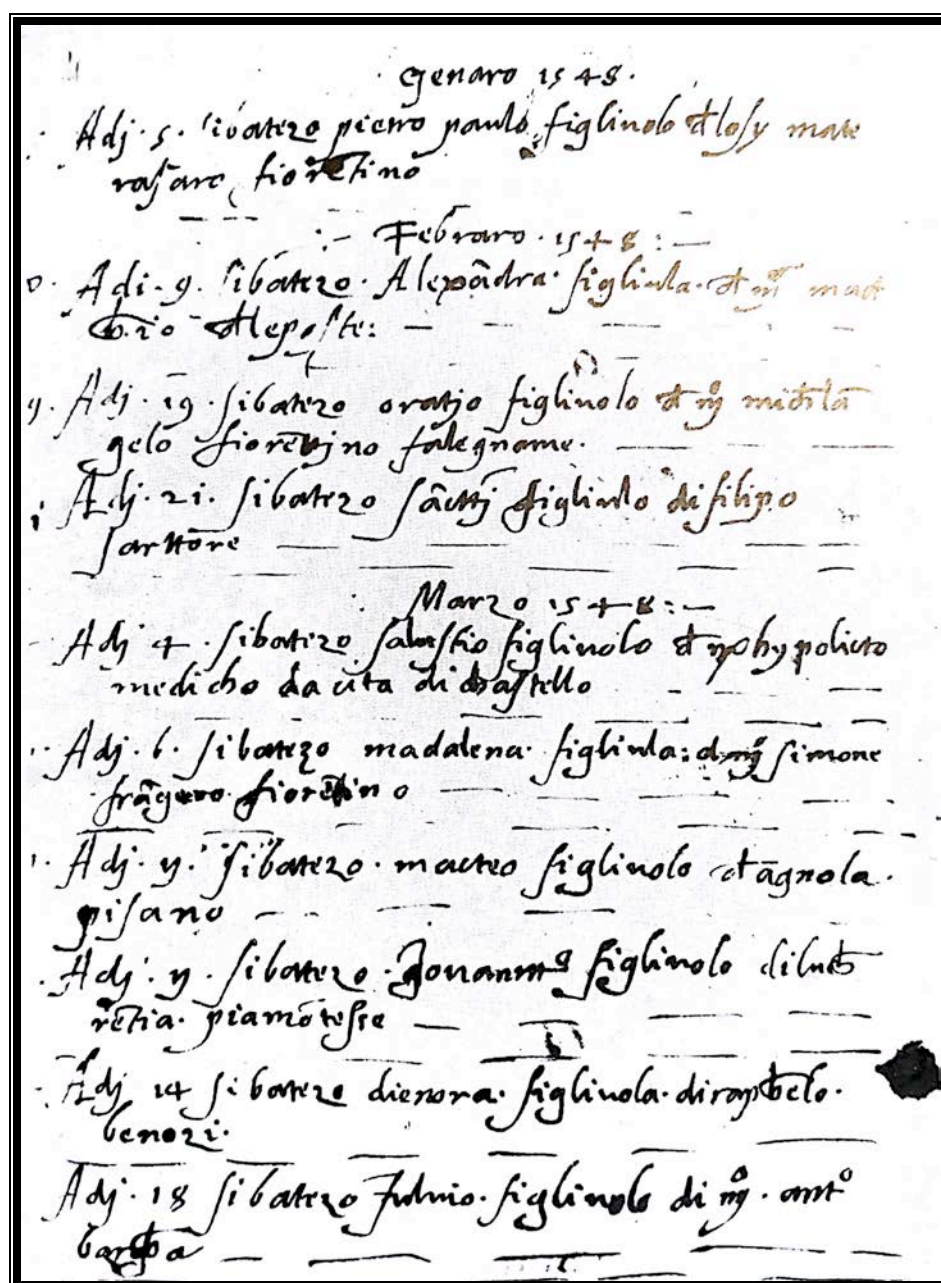 · genaro 1548 ·
Adj · 5 · sibatezo pietro paulo figliuolo d losy mate
rasaro fiorētino
:- Febraro · 1548 : —
Adi · 9 · sibatezo · Alexādra · figliula · d mº
d leposte : —
Adj · 19 · sibatezo oratjo figliuolo d mº michelā
gelo fiorētino falegname ·
Adj · 21 · sibatezo sāctj figliulo di filipo
sarttore
Marzo 1548 : —
Adj 4 · sibatezo salustio figliuolo d hypolicto
medicho da cita di chastello
Adj · 6 · sibatezo madalena · figliula : d mº simone
fiorētino
Adj · 11 · sibatezo · macteo figliuolo d āgnola ·
pisano
Adj · 11 · sibatezo · figliuolo di
rētia · piamōtesse
Adj 14 sibatezo dienora · figliuola · di raphaelo ·
benozi ·
Adj · 18 sibatezo Fuluio · figliuolo di mº · antº